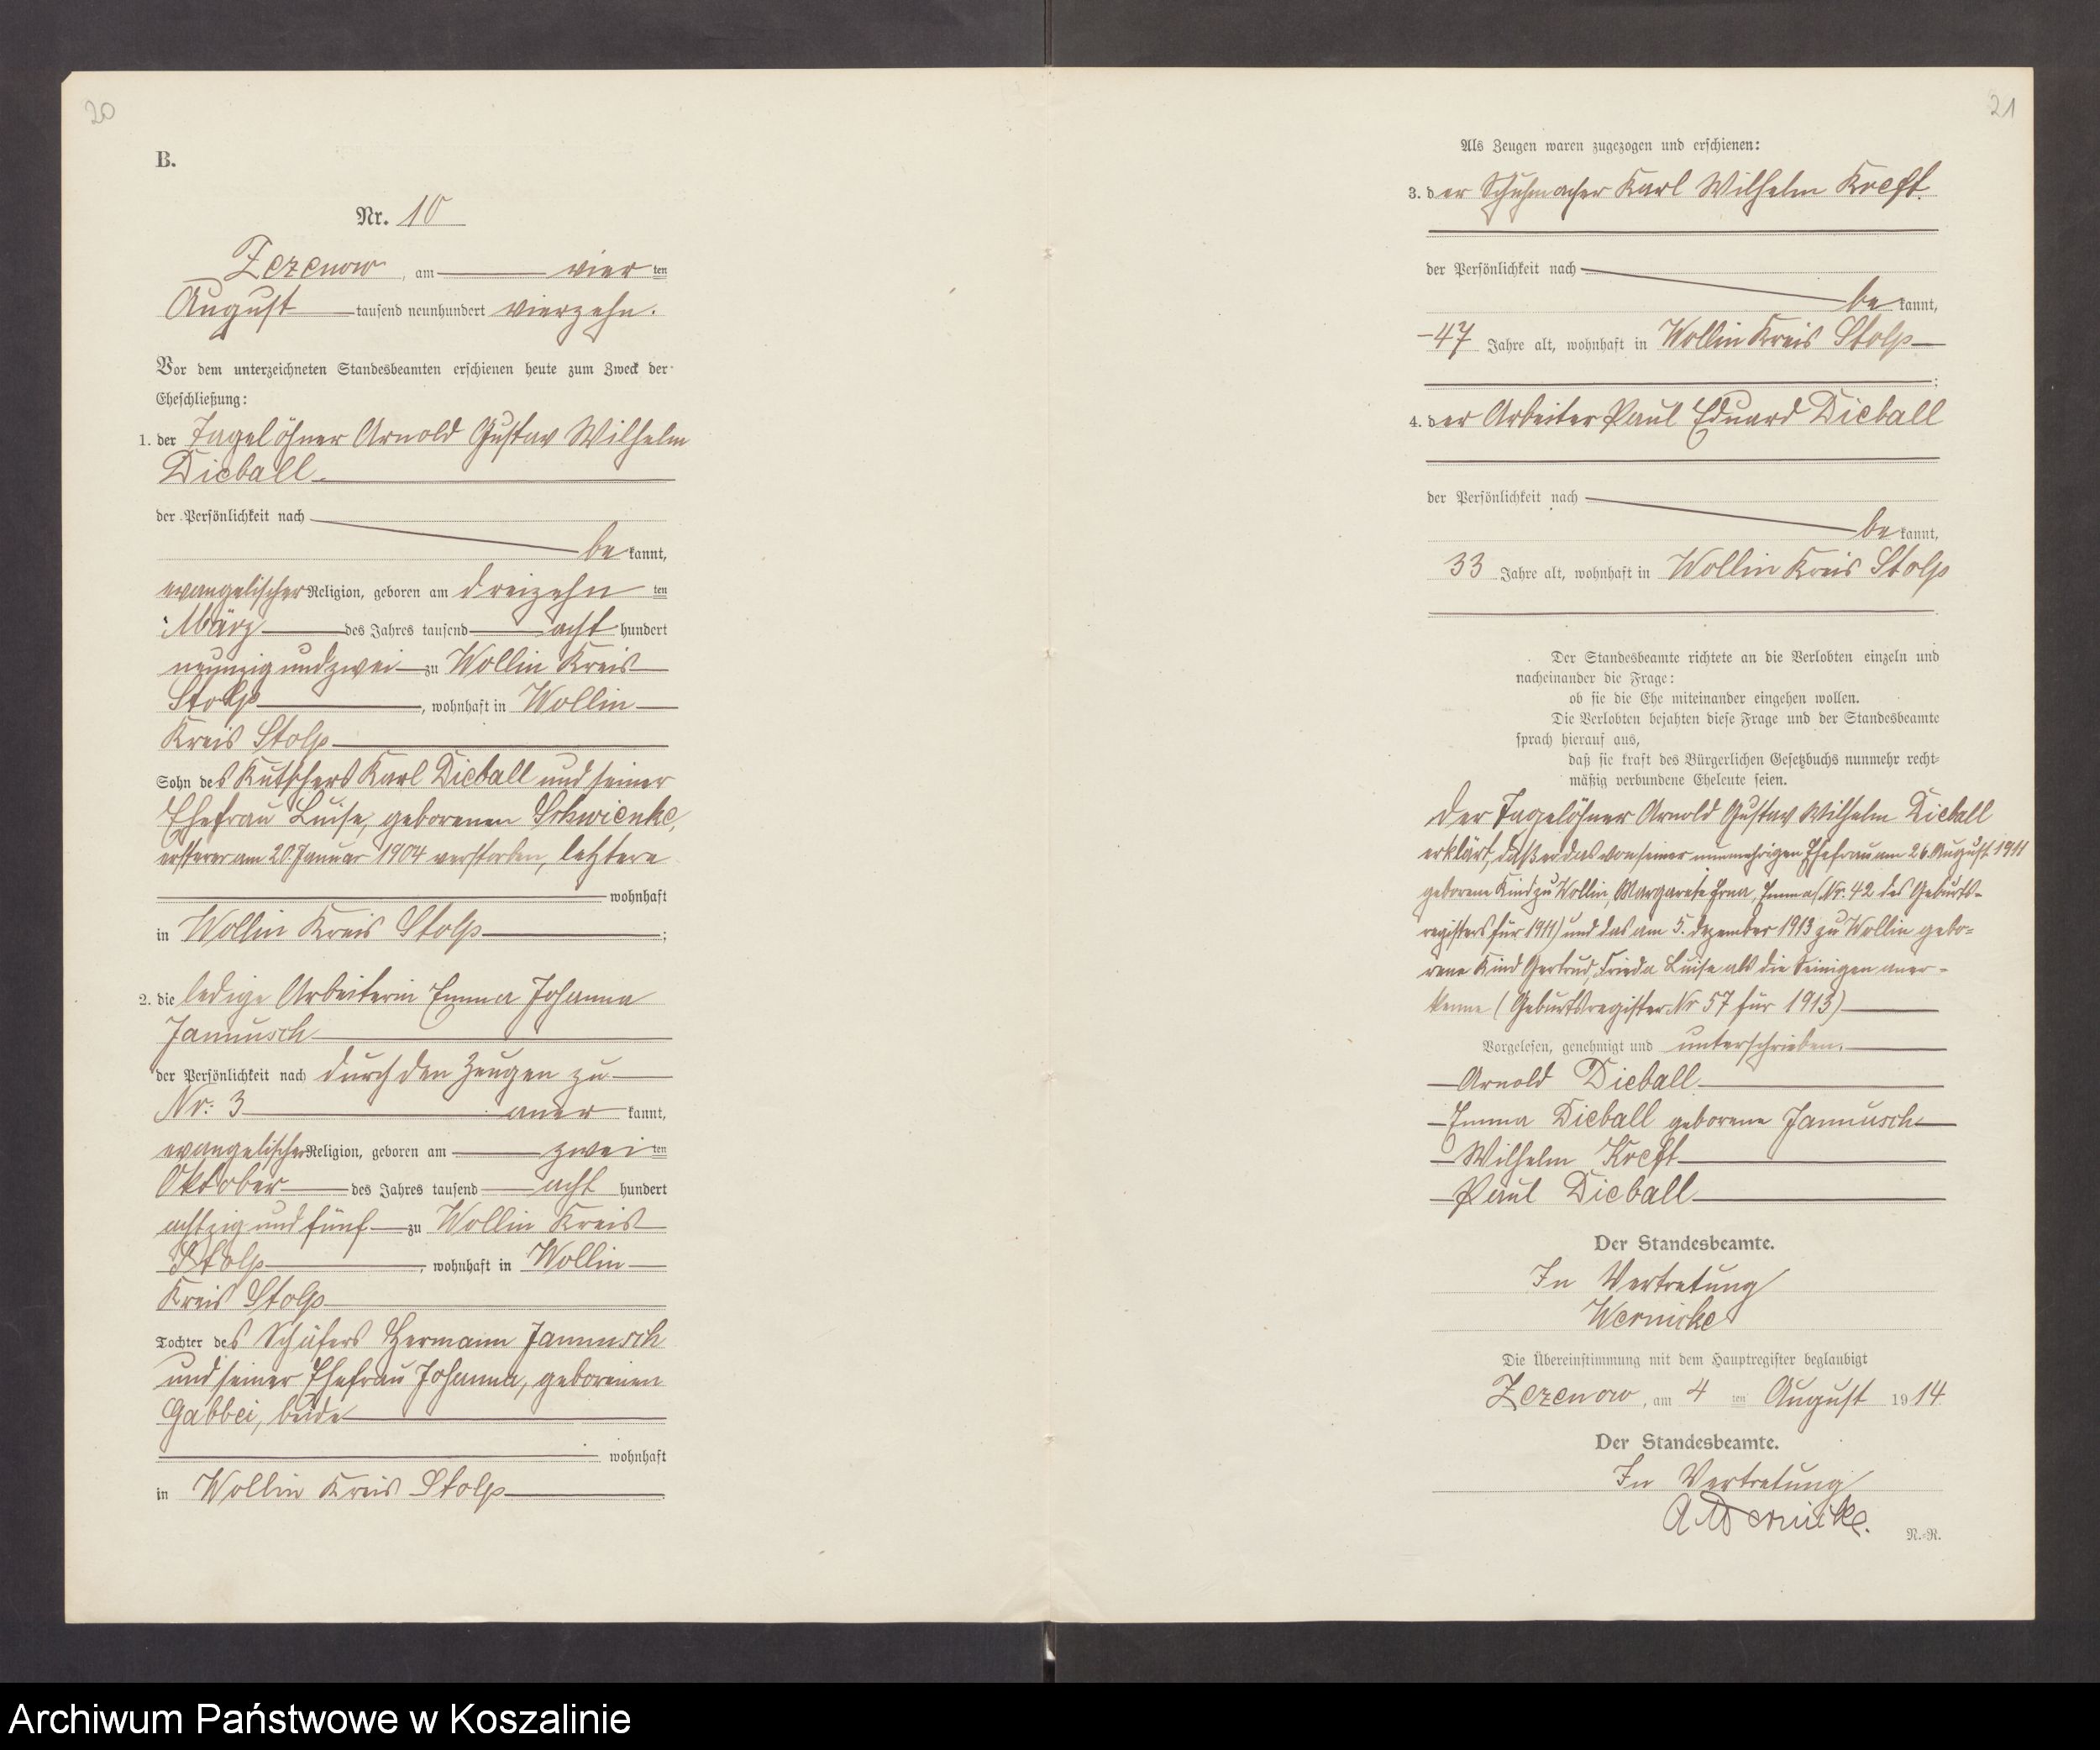 20
B.
Nr. 10
Zezenow, am vierten
August tausend neunhundert vierzehn.
Vor dem unterzeichneten Standesbeamten erschienen heute zum Zweck der
Eheschließung:
1. der Tagelöhner Arnold Gustav Wilhelm
Dieball
der Persönlichkeit nach
bekannt,
evangelischer Religion, geboren am dreizehnten
März des Jahres tausend acht hundert
neunzig und zwei zu Wollin Kreis
Stolp, wohnhaft in Wollin
Kreis Stolp
Sohn des Kutschers Karl Dieball und seiner
Ehefrau Luise, geborenen Schwienke,
ersterer am 20. Januar 1904 verstorben, letztere
wohnhaft
in Wollin Kreis Stolp;
2. die ledige Arbeiterin Emma Johanna
Jannusch
der Persönlichkeit nach durch den Zeugen zu
Nr. 3 anerkannt,
evangelischer Religion, geboren am zweiten
Oktober des Jahres tausend acht hundert
achtzig und fünf zu Wollin Kreis
Stolp, wohnhaft in Wollin
Kreis Stolp
Tochter des Schäfers Hermann Jannusch
und seiner Ehefrau Johanna, geborenen
Gabbei, beide
wohnhaft
in Wollin Kreis Stolp
21
Als Zeugen waren zugezogen und erschienen:
3. der Schuhmacher Karl Wilhelm Kreft.
der Persönlichkeit nach
bekannt,
47 Jahre alt, wohnhaft in Wollin Kreis Stolp
;
4. der Arbeiter Paul Eduard Dieball
der Persönlichkeit nach
bekannt,
33 Jahre alt, wohnhaft in Wollin Kreis Stolp
Der Standesbeamte richtete an die Verlobten einzeln und
nacheinander die Frage:
ob sie die Ehe miteinander eingehen wollen.
Die Verlobten bejahten diese Frage und der Standesbeamte
sprach hierauf aus,
daß sie kraft des Bürgerlichen Gesetzbuchs nunmehr recht-
mäßig verbundene Eheleute seien.
Der Tagelöhner Arnold Gustav Wilhelm Dieball
erklärt, daß er das von seiner nunmehrigen Ehefrau am 26. August 1911
geborene Kind zu Wollin, Margarete Erna, Emma (Nr. 42 des Geburts-
registers für 1911) und das am 5. Dezember 1913 zu Wollin gebo-
rene Kind Gertrud, Frieda Luise als die Seinigen aner-
kenne (Geburtsregister Nr 57 für 1913)
Vorgelesen, genehmigt und unterschrieben.
Arnold Dieball
Emma Dieball geborene Jannusch
Wilhelm Kreft
Paul Dieball
Der Standesbeamte.
In Vertretung
Wernicke
Die Übereinstimmung mit dem Hauptregister beglaubigt
Zezenow, am 4 ten August 1914
Der Standesbeamte.
In Vertretung
A Wernicke.
N.-R.
Archiwum Państwowe w Koszalinie